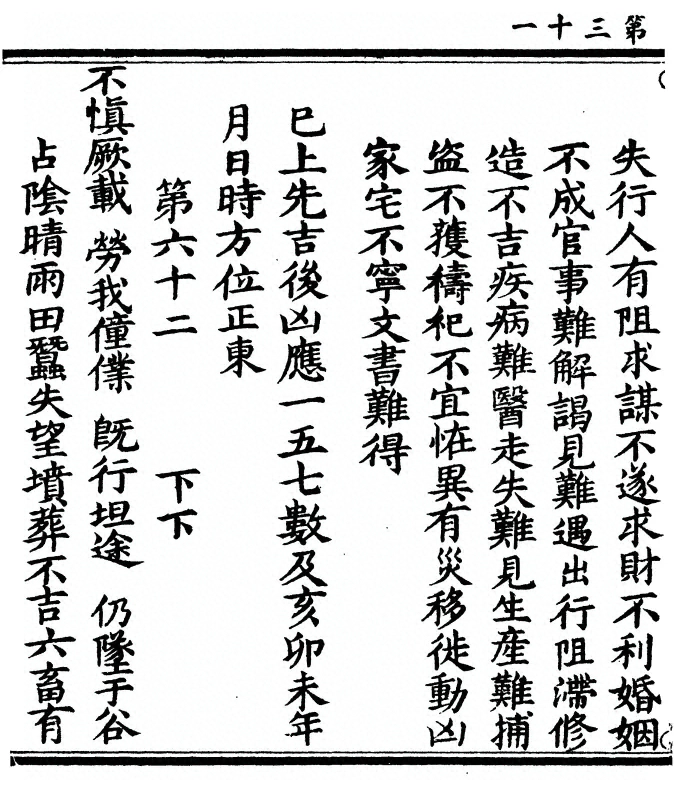 第三十一
失行人有阻求謀不遂求財不利婚姻
不成官事難解謁見難遇出行阻滯修
造不吉疾病難醫走失難見生產難捕
盜不獲禱祀不宜恠異有災移徙動凶
家宅不寧文書難得
巳上先吉後凶應一五七數及亥卯未年
月日時方位正東
第六十二 下下
不慎厥載 勞我僮僕 既行坦途 仍墜于谷
占陰晴雨田蠶失望墳葬不吉六畜有